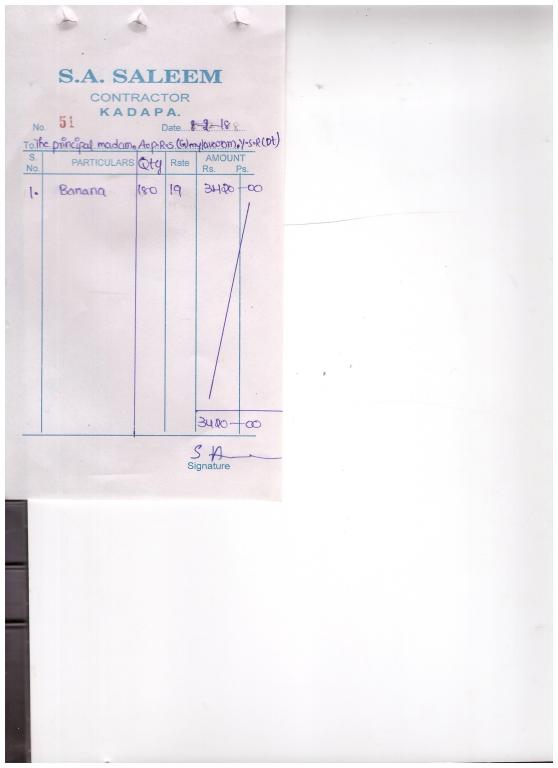 S.A. SALEEM
CONTRACTOR
KADAPA.
No. 51 Date 8-2-18
To The principal madam, A.P.R.S. (G) mylavaram, Y.S.R (Dt)
S. No. PARTICULARS Qty Rate AMOUNT Rs. Ps.
1. Banana 180 19 3420-00
3420-00
S A
Signature